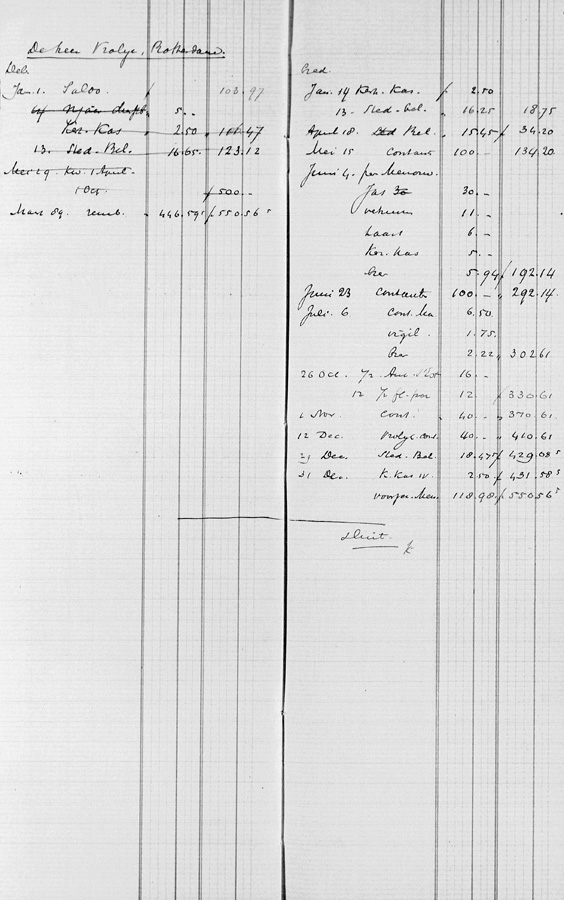 De heer Vrolyk, Rotterdam.
Deb.
Jan. 1. Saldo f 103.97
5.--
Ker. Kas " 2.50 " 106.47
13. Sted. Bel. 16.65 " 123.12
Mei 29. Kw. 1 April
1 Oct. f 500.--
Maart 89. remb. " 446.59⁵ f 550.56⁵
Cred.
Jan. 14 Kerk. Kas. f 2.50
13. Sted. Bel. " 16.25 18.75
April 18. Sted Bel. " 15.45 f 34.20
Mei 15 contant 100.-- 134.20
Juni 4. per Memor.
Jas 30.--
11.--
6.--
Ker. Kas 5.--
5.94 f 192.14
Juni 23 contant 100.-- " 292.14.
Juli 6 cont. 6.50
vigil. 1.75.
2.22 " 302.61
26 Oct. 1/2 16.--
12 1/2 12 f 330.61
1 Nov. cont. " 40.-- " 370.61.
12 Dec. Vrolyk cont. 40.-- " 410.61
29 Dec. Sted. Bel. 18.47⁵ f 429.08⁵
31 Dec. K. Kas 2.50 f 431.58⁵
118.98 f 550.56⁵